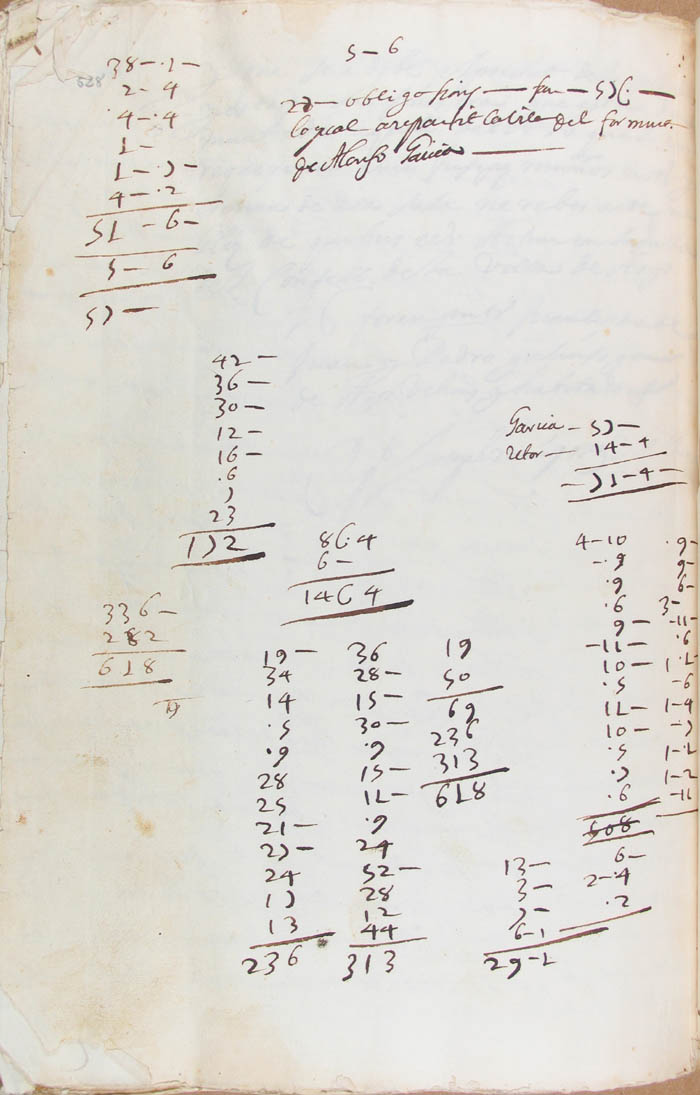 5 – 6
38 – · 1 –
2 – 4
· 4 – · 4
1 –
1 – · 7 –
4 – · 2
51 – 6 –
5 – 6
57 –
27 – obligasiony – – 57
logual del
de Alonso Garcia
42 –
36 –
30 –
12 –
16 –
· 6
7
23
172
Garcia – 57 –
retor – 14 – 4
– 71 – 4 –
86 · 4
6 –
1464
336 –
282
618
19 –
34
14
· 5
· 9
28
25
21 –
27 –
24
17
13
236
36
28 –
15 –
30 –
· 9
15 –
11 –
· 9
24
52 –
28
12
44
313
19
50
69
236
313
618
4 – 10
– · 9
· 9
· 6
9 –
– 11 –
10 –
· 5
11 –
10 –
· 5
· 7
· 6
508
6 –
2 – · 4
· 2
13 –
3 –
7 –
6 – 1
29 – 1
· 9 –
9 –
6 –
3 –
– 11 –
· 6
1 – 1
– 6
1 – 4
– 7
1 – 1
1 – 2
– 11